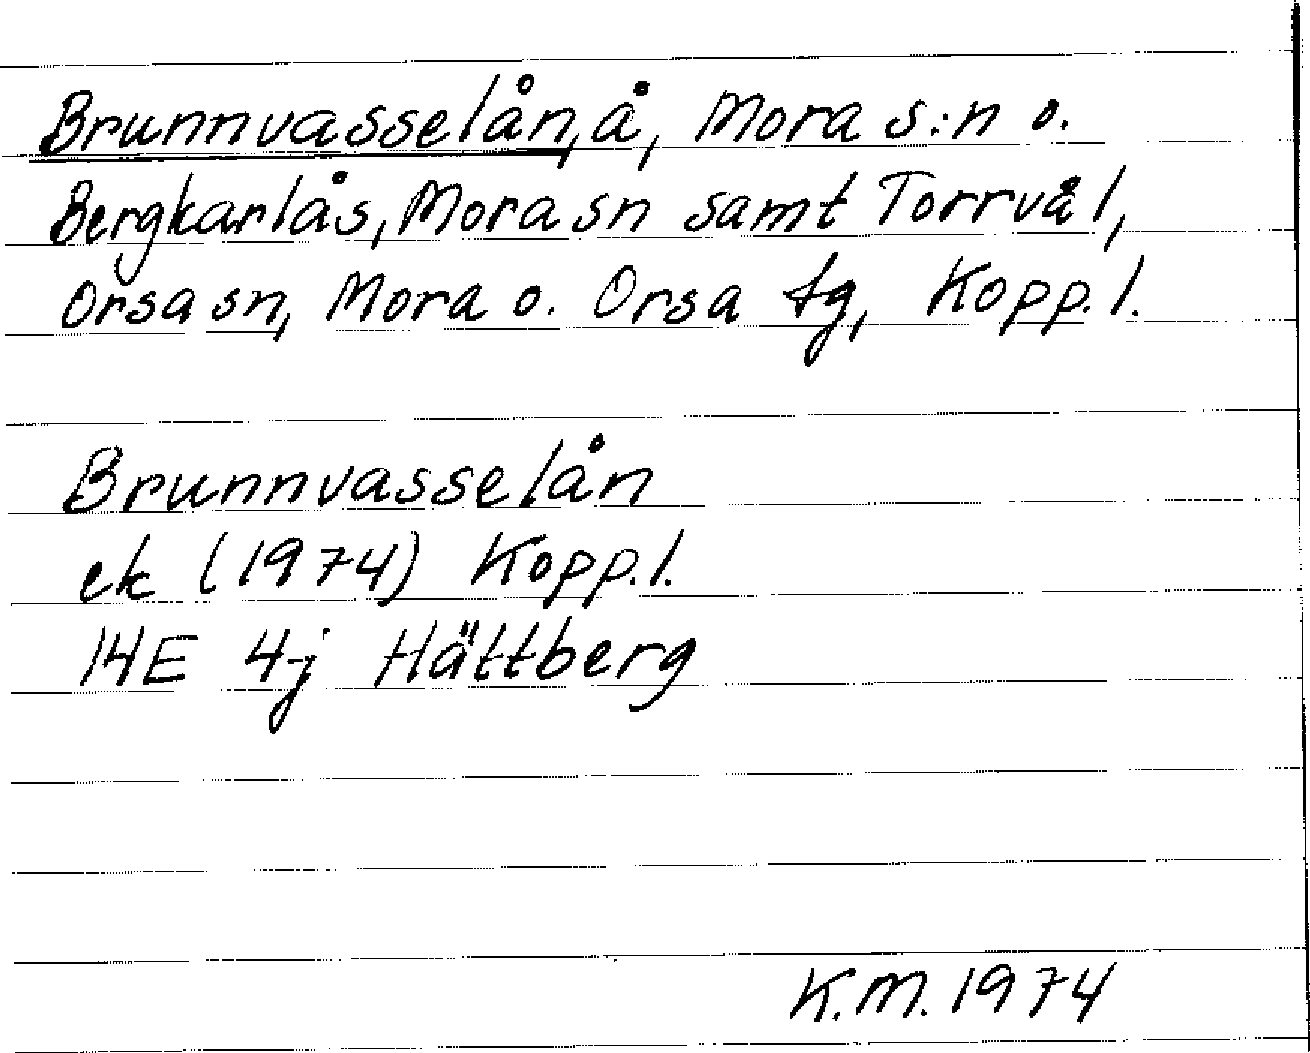 Brunnvasselån, å, Mora s:n o.
Bergkarlås, Mora sn samt Torrvål,
Orsa sn, Mora o. Orsa tg, Kopp. l.
Brunnvasselån
ek (1974) Kopp. l.
14E 4j Hättberg
K.M. 1974